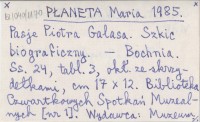 PŁANETA Maria 1985.
Pasje Piotra Galasa. Szkic
biograficzny. — Bochnia.
Ss. 24, tabl. 3, okł. ze skrzy-
dełkami, cm 17 x 12. Biblioteka
Czwartkowych Spotkań Muzeal-
nych [nr 1]. Wydawca: Muzeum.